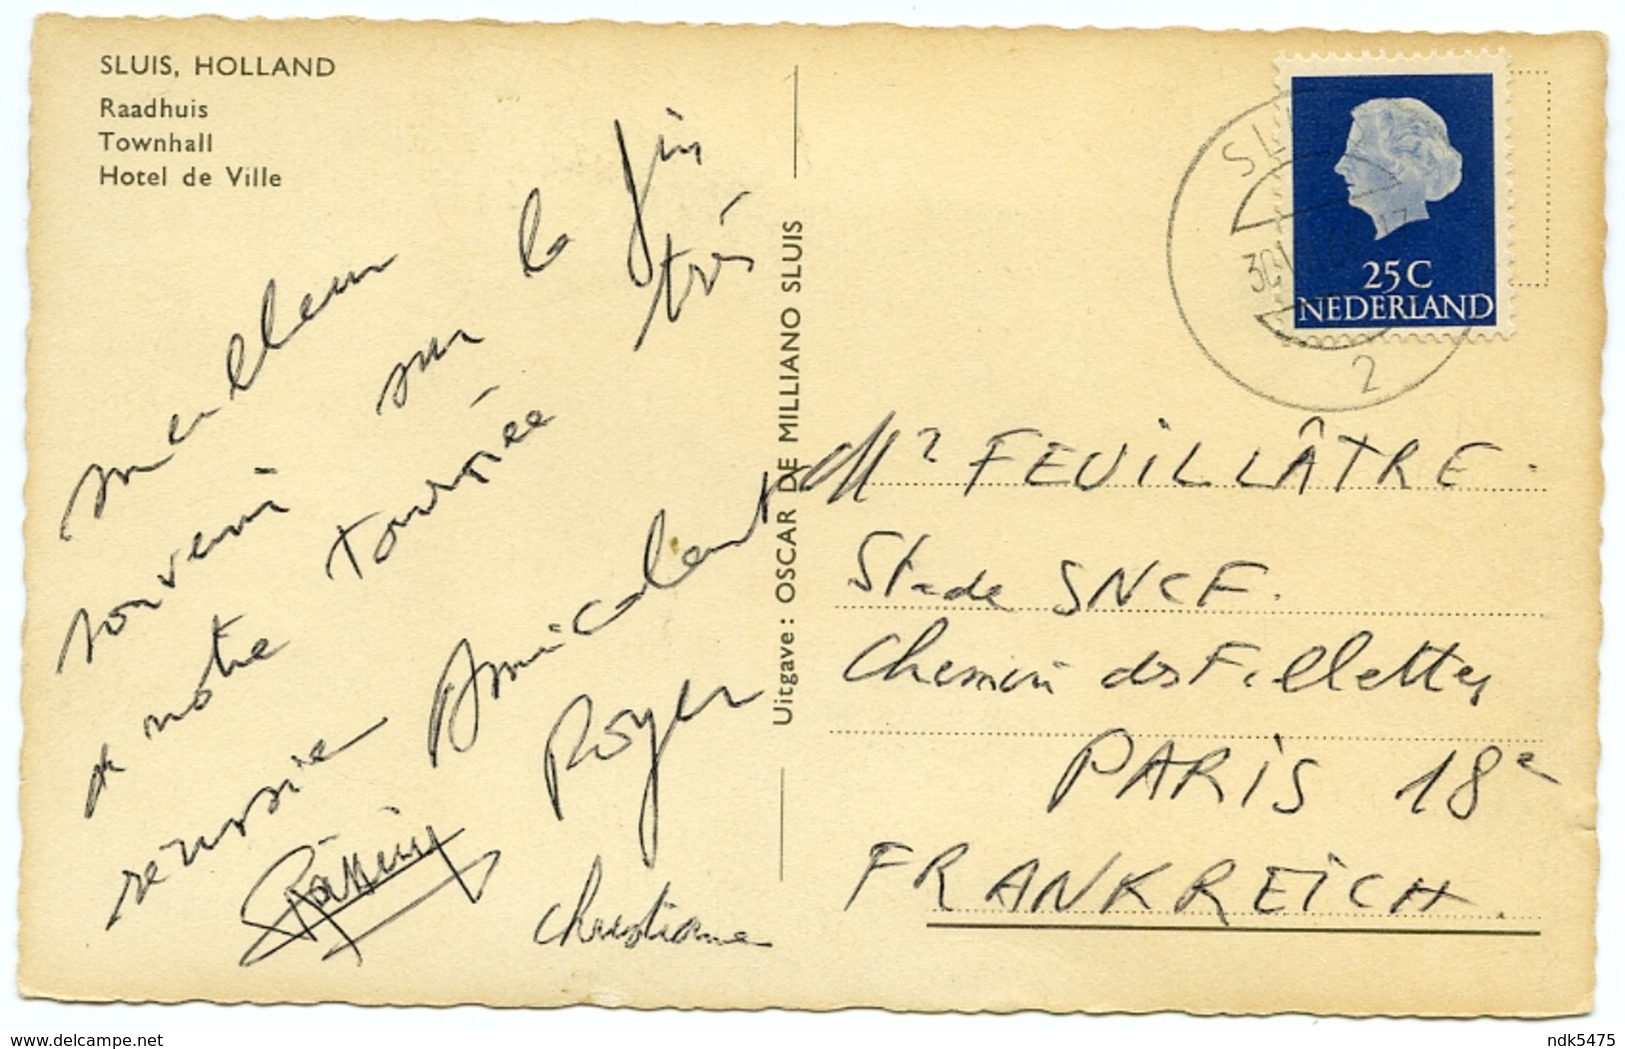 SLUIS, HOLLAND
Raadhuis
Townhall
Hotel de Ville
meilleur
souvenir sur la fin
de notre tournée très
réussie Amicalement
Royer
Christiane
Uitgave: OSCAR DE MILLIANO SLUIS
25C
NEDERLAND
2
Mr FEUILLÂTRE.
Stade SNCF.
Chemin des Fillettes
PARIS 18e
FRANKREICH.
www.delcampe.net
ndk5475